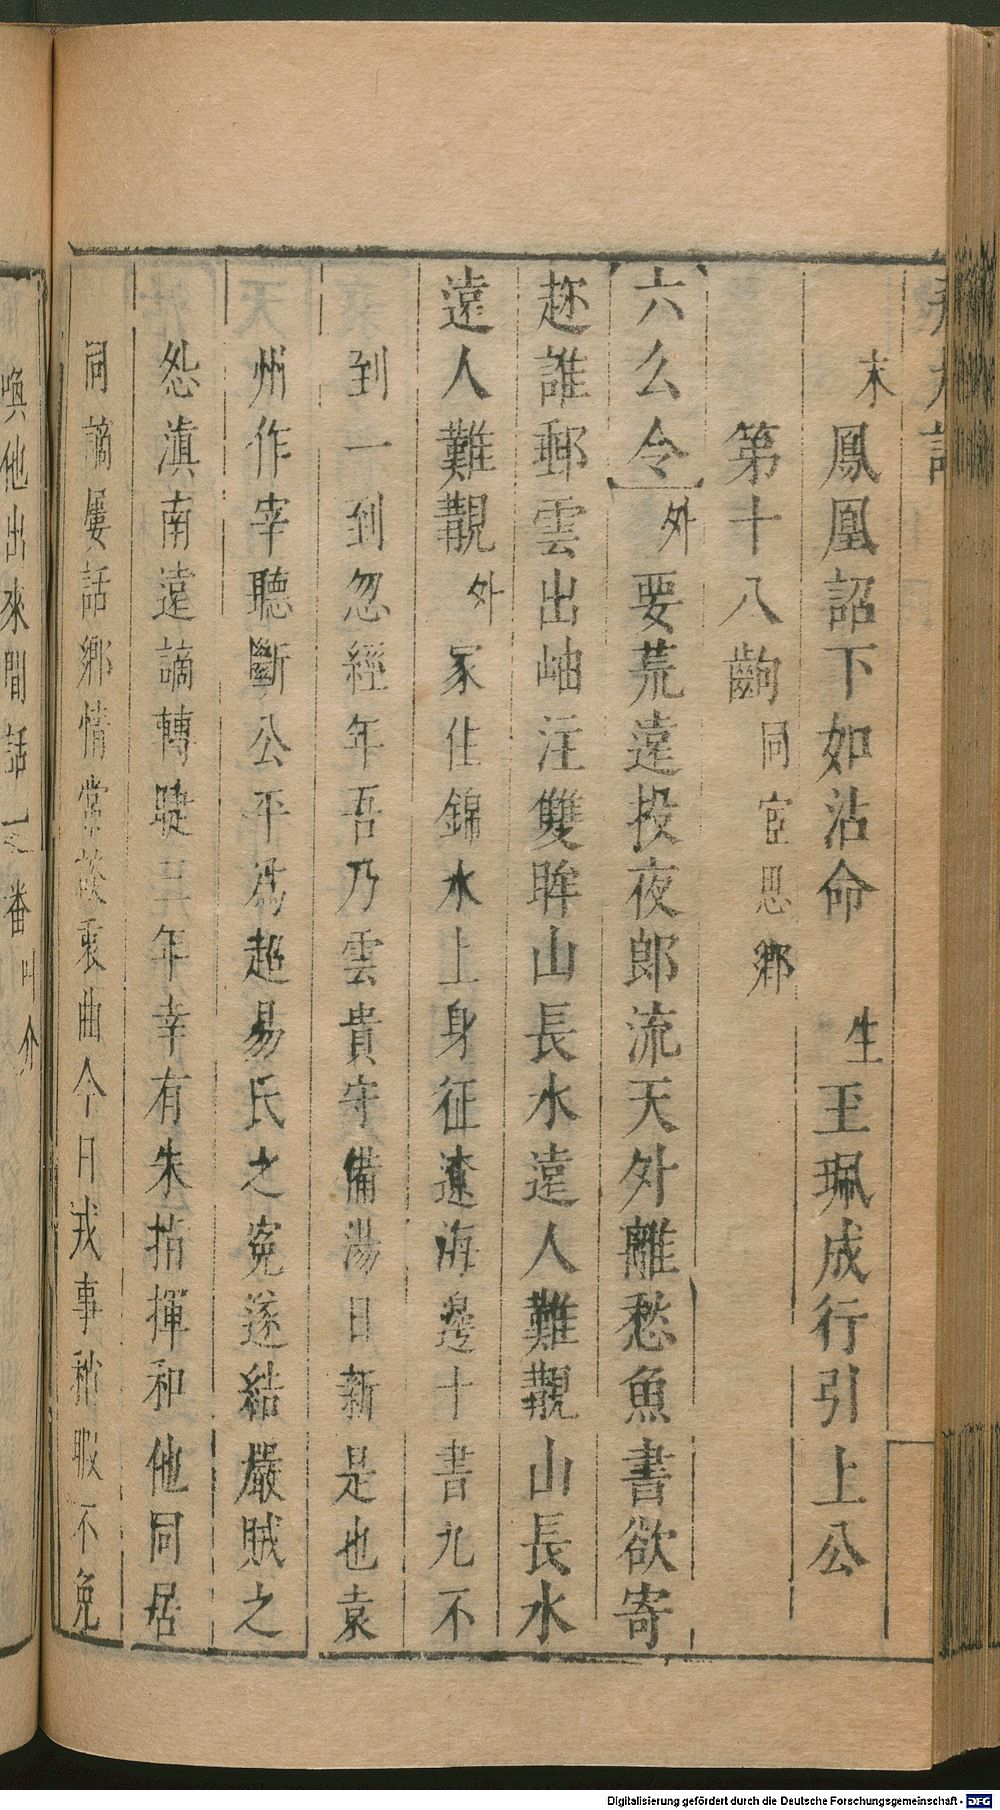 末鳳凰詔下如沾命　生玉珮成行引上公
第十八齣同宦思鄉
六么令外要荒遠投夜郎流天外離愁魚書欲寄
趂誰郵雲出岫注雙眸山長水遠人難覯山長水
遠人難覯外家住錦水上身征遼海邊十書九不
到一到忽經年吾乃雲貴守備湯日新是也袁
州作宰聽斷公平爲趙易氏之寃遂結嚴賊之
怨滇南遠謫轉睫年幸有朱指揮和他同居
同謫屢話鄉情常談衷曲今日戎事稍暇不免
喚他出來閒話一番叫介
Digitalisierung gefördert durch die Deutsche Forschungsgemeinschaft - DFG